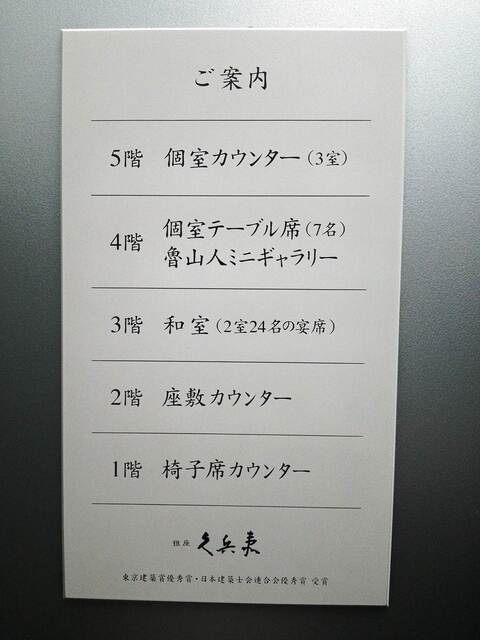 ご案内
5階 個室カウンター(3室)
4階 個室テーブル席(7名)
魯山人ミニギャラリー
3階 和室(2室24名の宴席)
2階 座敷カウンター
1階 椅子席カウンター
銀座 久兵衛
東京建築賞優秀賞・日本建築士会連合会優秀賞 受賞